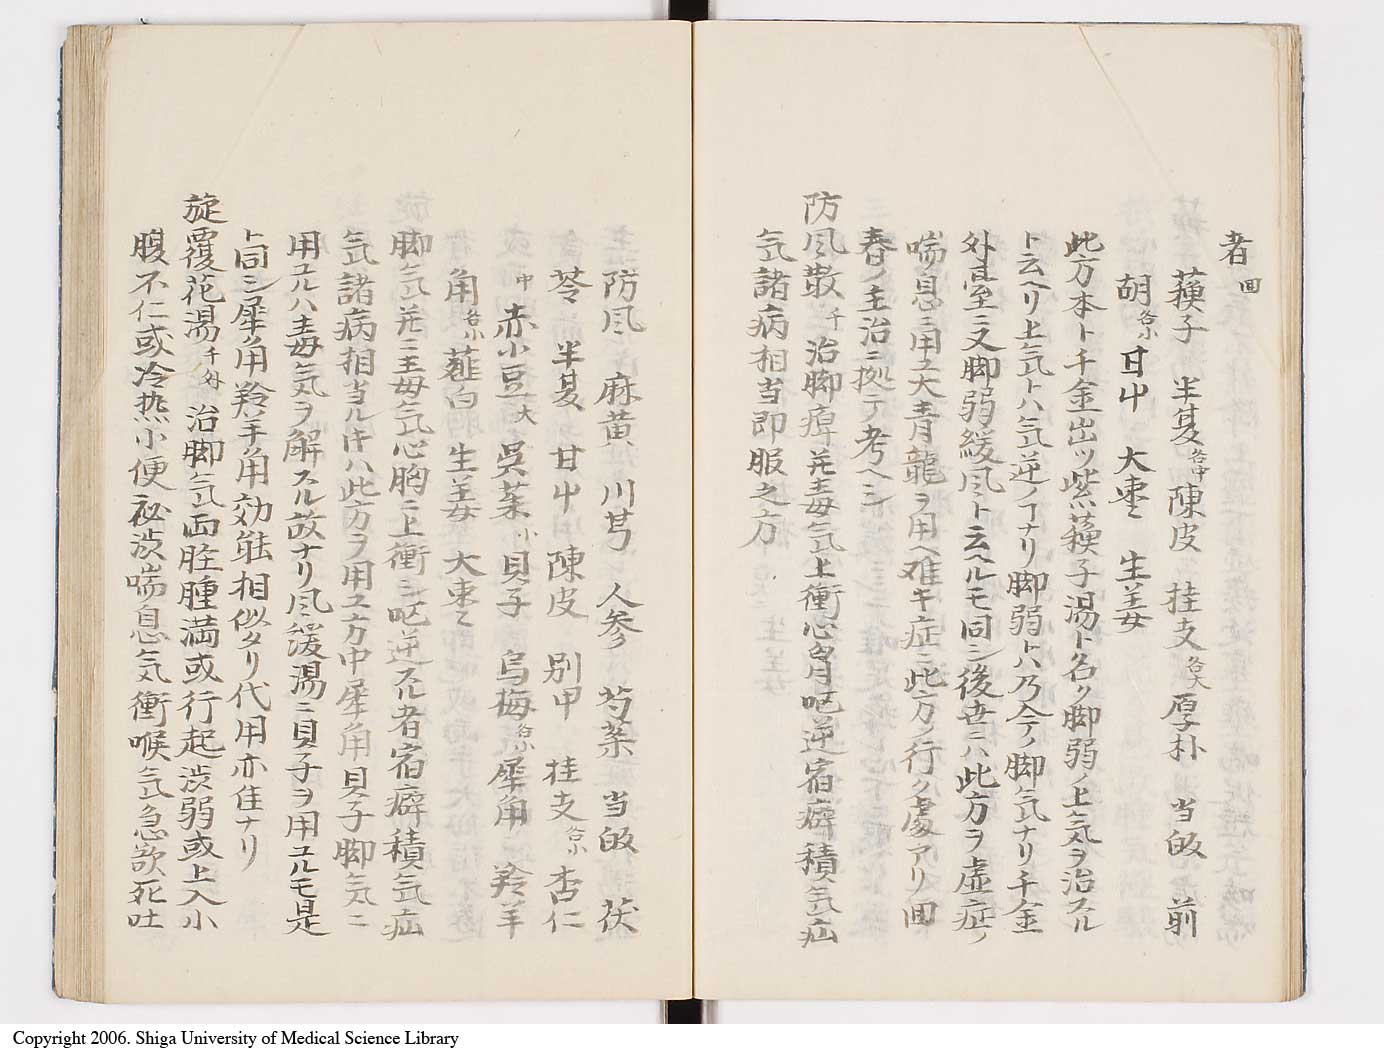 者 回
蘓子 半夏各中 陳皮 桂支各大 厚朴 当皈 前
胡各小 甘屮 大枣 生姜
此方本ト千金出ツ紫蘓子湯ト名ク脚弱ノ上気ヲ治スル
ト云ヘリ上気トハ気逆ノヿナリ脚弱トハ乃今ノ脚気ナリ千金
外臺ニ又脚弱緩風ト云ヘルモ同シ後世ニハ此方ヲ虚症ノ
喘息ニ用ユ大青龍ヲ用ヘ难キ症ニ此方ノ行ク處アリ回
春ノ主治ニ拠テ考ヘシ
防风散 千 治脚痺并毒気上衝心胷呕逆宿癖積気疝
気諸病相当即服之方
防风 麻黄 川芎 人参 芍薬 当皈 茯
苓 半夏 甘屮 陳皮 別甲 桂支各小 杏仁
中 赤小豆大 呉茱小 貝子 烏梅各小 犀角 羚羊
角各小 薤白 生姜 大枣
脚気并ニ毒気心胸ニ上衝シ呕逆スル者宿癖積気疝
気諸病相当ル時ハ此方ヲ用ユ方中犀角貝子脚気ニ
用ユルハ毒気ヲ解スル故ナリ风緩湯ニ貝子ヲ用ユルモ是
ト同シ犀角羚羊角効能相似タリ代用亦佳ナリ
旋覆花湯 千 外 治脚気両胫腫満或行起渋弱或上入小
腹不仁或冷热小便秘渋喘息気衝喉気急欲死吐
Copyright 2006. Shiga University of Medical Science Library